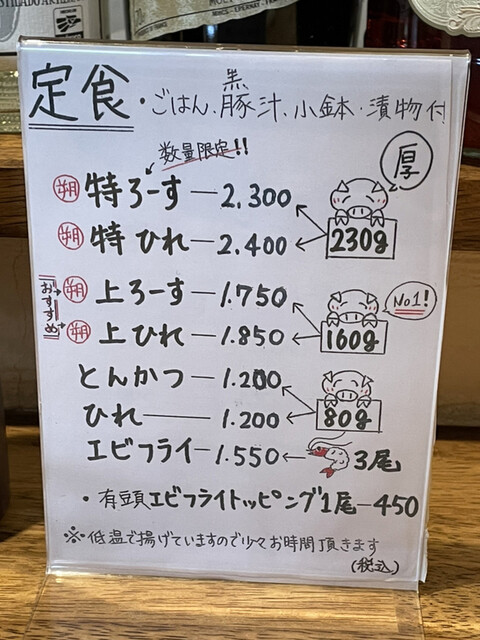 定食・ごはん、黒豚汁、小鉢・漬物付
数量限定!!
厚
朔 特ろーす―2,300
朔 特ひれ―2,400
230g
おすすめ
朔 上ろーす―1.750
朔 上ひれ―1.850
160g
No1!
とんかつ―1.200
ひれ―1.200
80g
エビフライ―1.550←3尾
・有頭エビフライトッピング1尾―450
※低温で揚げていますので少々お時間頂きます
(税込)